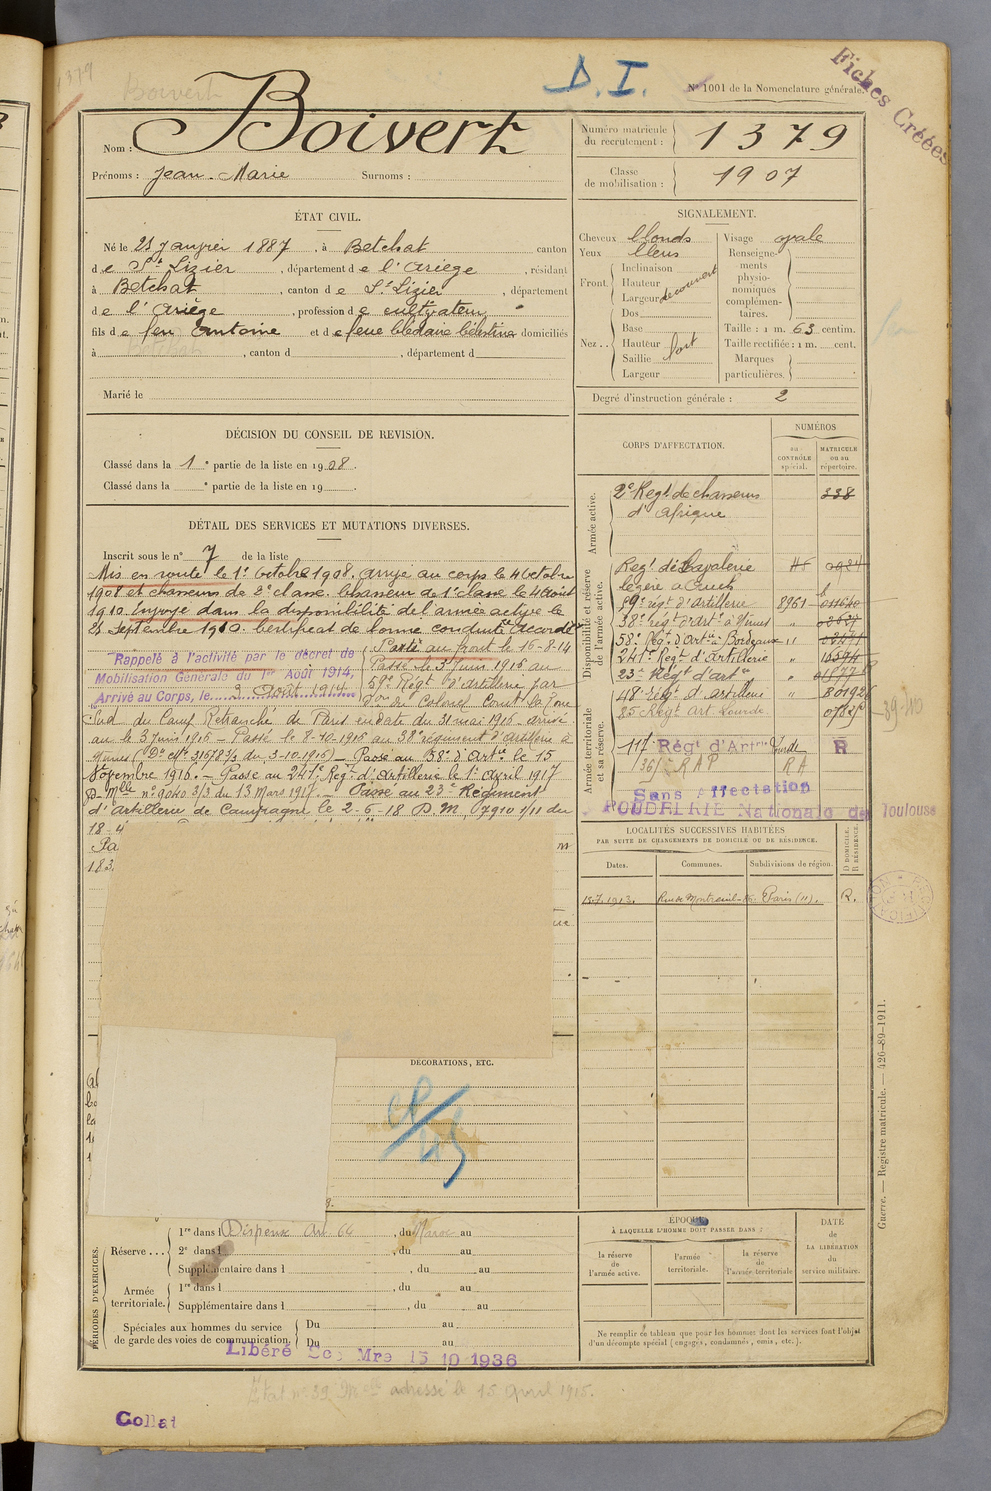 1379
Boivert
D. I.
N° 1001 de la Nomenclature générale.
Fiches Créées
Nom : Boivert
Prénoms : Jean-Marie Surnoms :
Numéro matricule du recrutement : 1379
Classe de mobilisation : 1907
ÉTAT CIVIL.
Né le 25 Janvier 1887, à Betchat canton
de St Lizier, département de l'Ariège, résidant
à Betchat, canton de St Lizier, département
de l'Ariège, profession de cultivateur
fils de feu Antoine et de feue domiciliés
à , canton d , département d
Marié le
SIGNALEMENT.
Cheveux blonds
Yeux bleus
Front. Inclinaison
Hauteur
Largeur découvert
Nez .. Dos
Base
Hauteur fort
Saillie
Largeur
Visage ovale
Renseignements physionomiques complémentaires.
Taille : 1 m. 63 centim.
Taille rectifiée : 1 m. cent.
Marques particulières.
Degré d'instruction générale : 2
DÉCISION DU CONSEIL DE REVISION.
Classé dans la 1e partie de la liste en 1908.
Classé dans la e partie de la liste en 19
DÉTAIL DES SERVICES ET MUTATIONS DIVERSES.
Inscrit sous le n° 7 de la liste
Mis en route le 1er Octobre 1908. arrivé au corps le 4 Octobre
1908 et chasseurs de 2e classe. Chasseur de 1e classe le 4 Août
1910. Envoyé dans la disponibilité de l'armée active le
25 Septembre 1910. Certificat de bonne conduite Accordé
Rappelé à l'activité par le décret de
Mobilisation Générale du 1er Août 1914,
Arrivé au Corps, le 3 Août 1914
Parti au front le 16-8-14
Passé le 3 Juin 1916 au
59e Régt d'Artillerie par
Don du Colonel Comt la Zone
Sud du Camp Retranché de Paris en date du 31 mai 1916 - arrivé
au le 3 Juin 1916 - Passé le 8-10-1916 au 38e régiment d'Artillerie à
Nimes (Don du 3-10-1916) - Passé au 58e d'Artie le 15
Novembre 1916. - Passé au 241e Régt d'Artillerie le 1er Avril 1917
D. Mlle n° 9040 2/3 du 13 Mars 1917. - Passé au 23e Régiment
d'Artillerie de Campagne le 2-6-18 D.M. 67910 1/11 du
18-4
Pa
183
CORPS D'AFFECTATION.
NUMÉROS
au CONTRÔLE spécial.
MATRICULE ou au répertoire.
Armée active.
2e Régt de chasseurs d'Afrique 338
Disponibilité et réserve de l'armée active.
Regt de Cavalerie
légère à Auch
59e régt d'Artillerie 8961
38e régt d'Artie à Nimes "
58e Régt d'Artie à Bordeaux "
241e Régt d'Artillerie " 16594
23e Régt d'Artie "
48e régt d'artillerie "
Armée territoriale et sa réserve.
85 Regt Art Lourde
117 Régt d'Artrie Lourde R
/36/ RAP RA
Sans Affectation
POUDRERIE Nationale de Toulouse
LOCALITÉS SUCCESSIVES HABITÉES
PAR SUITE DE CHANGEMENTS DE DOMICILE OU DE RÉSIDENCE.
Dates. Communes. Subdivisions de région. D DOMICILE. R RÉSIDENCE.
13.7.1912. Rue de Montreuil Paris (11). R.
DÉCORATIONS, ETC.
PÉRIODES D'EXERCICES.
Réserve ... 1re dans l Dispensé Art 64, du Maroc au
2e dans l , du au
Supplémentaire dans l , du au
Armée territoriale. 1re dans l , du au
Supplémentaire dans l , du au
Spéciales aux hommes du service de garde des voies de communication. Du au
Du au
Libéré Mre 15 10 1936
ÉPOQUE
À LAQUELLE L'HOMME DOIT PASSER DANS :
la réserve de l'armée active.
l'armée territoriale.
la réserve de l'armée territoriale
DATE de LA LIBÉRATION du service militaire.
Ne remplir ce tableau que pour les hommes dont les services font l'objet
d'un décompte spécial (engagés, condamnés, omis, etc.).
Guerre. — Registre matricule. — 426-89-1911.
État n° 39 adressé le 15 Avril 1915.
Collat